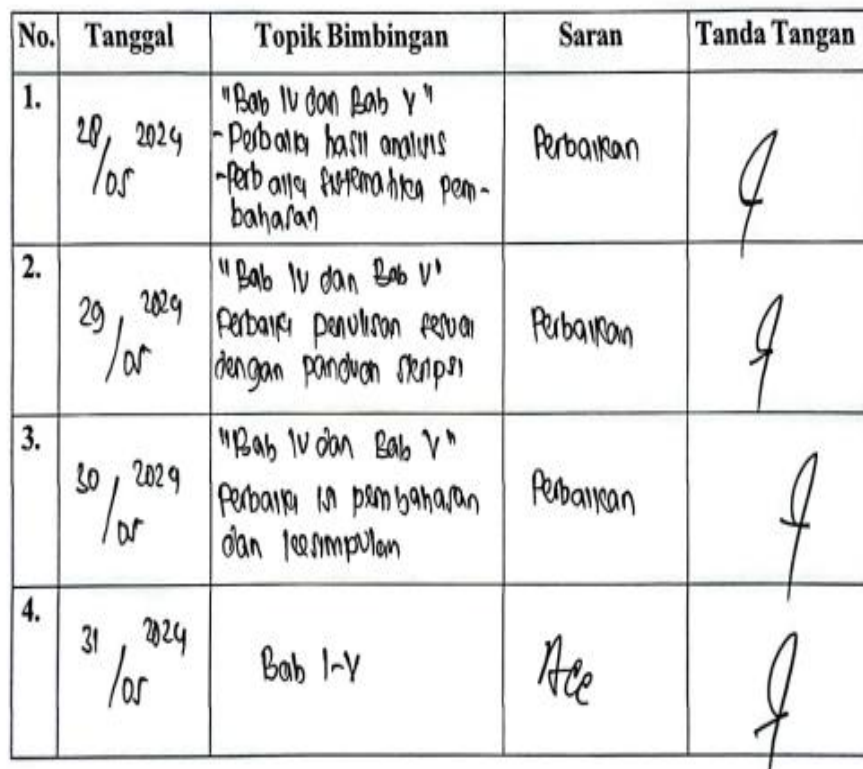 No. Tanggal Topik Bimbingan Saran Tanda Tangan
1.
28/05 2024
"Bab IV dan Bab V"
- Perbaiki hasil analisis
- Perbaiki sistematika pem-
bahasan
Perbaikan
2.
29/05 2024
"Bab IV dan Bab V"
Perbaiki penulisan sesuai
dengan panduan skripsi
Perbaikan
3.
30/05 2024
"Bab IV dan Bab V"
Perbaiki isi pembahasan
dan kesimpulan
Perbaikan
4.
31/05 2024
Bab I-V
Acc